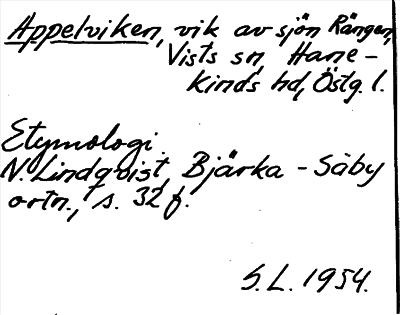 Appelviken, vik av sjön Rängen,
Vists sn, Hane-
kinds hd, Östg. l.
Etymologi.
N. Lindqvist, Bjärka-Säby
ortn., s. 32 f.
S.L. 1954.